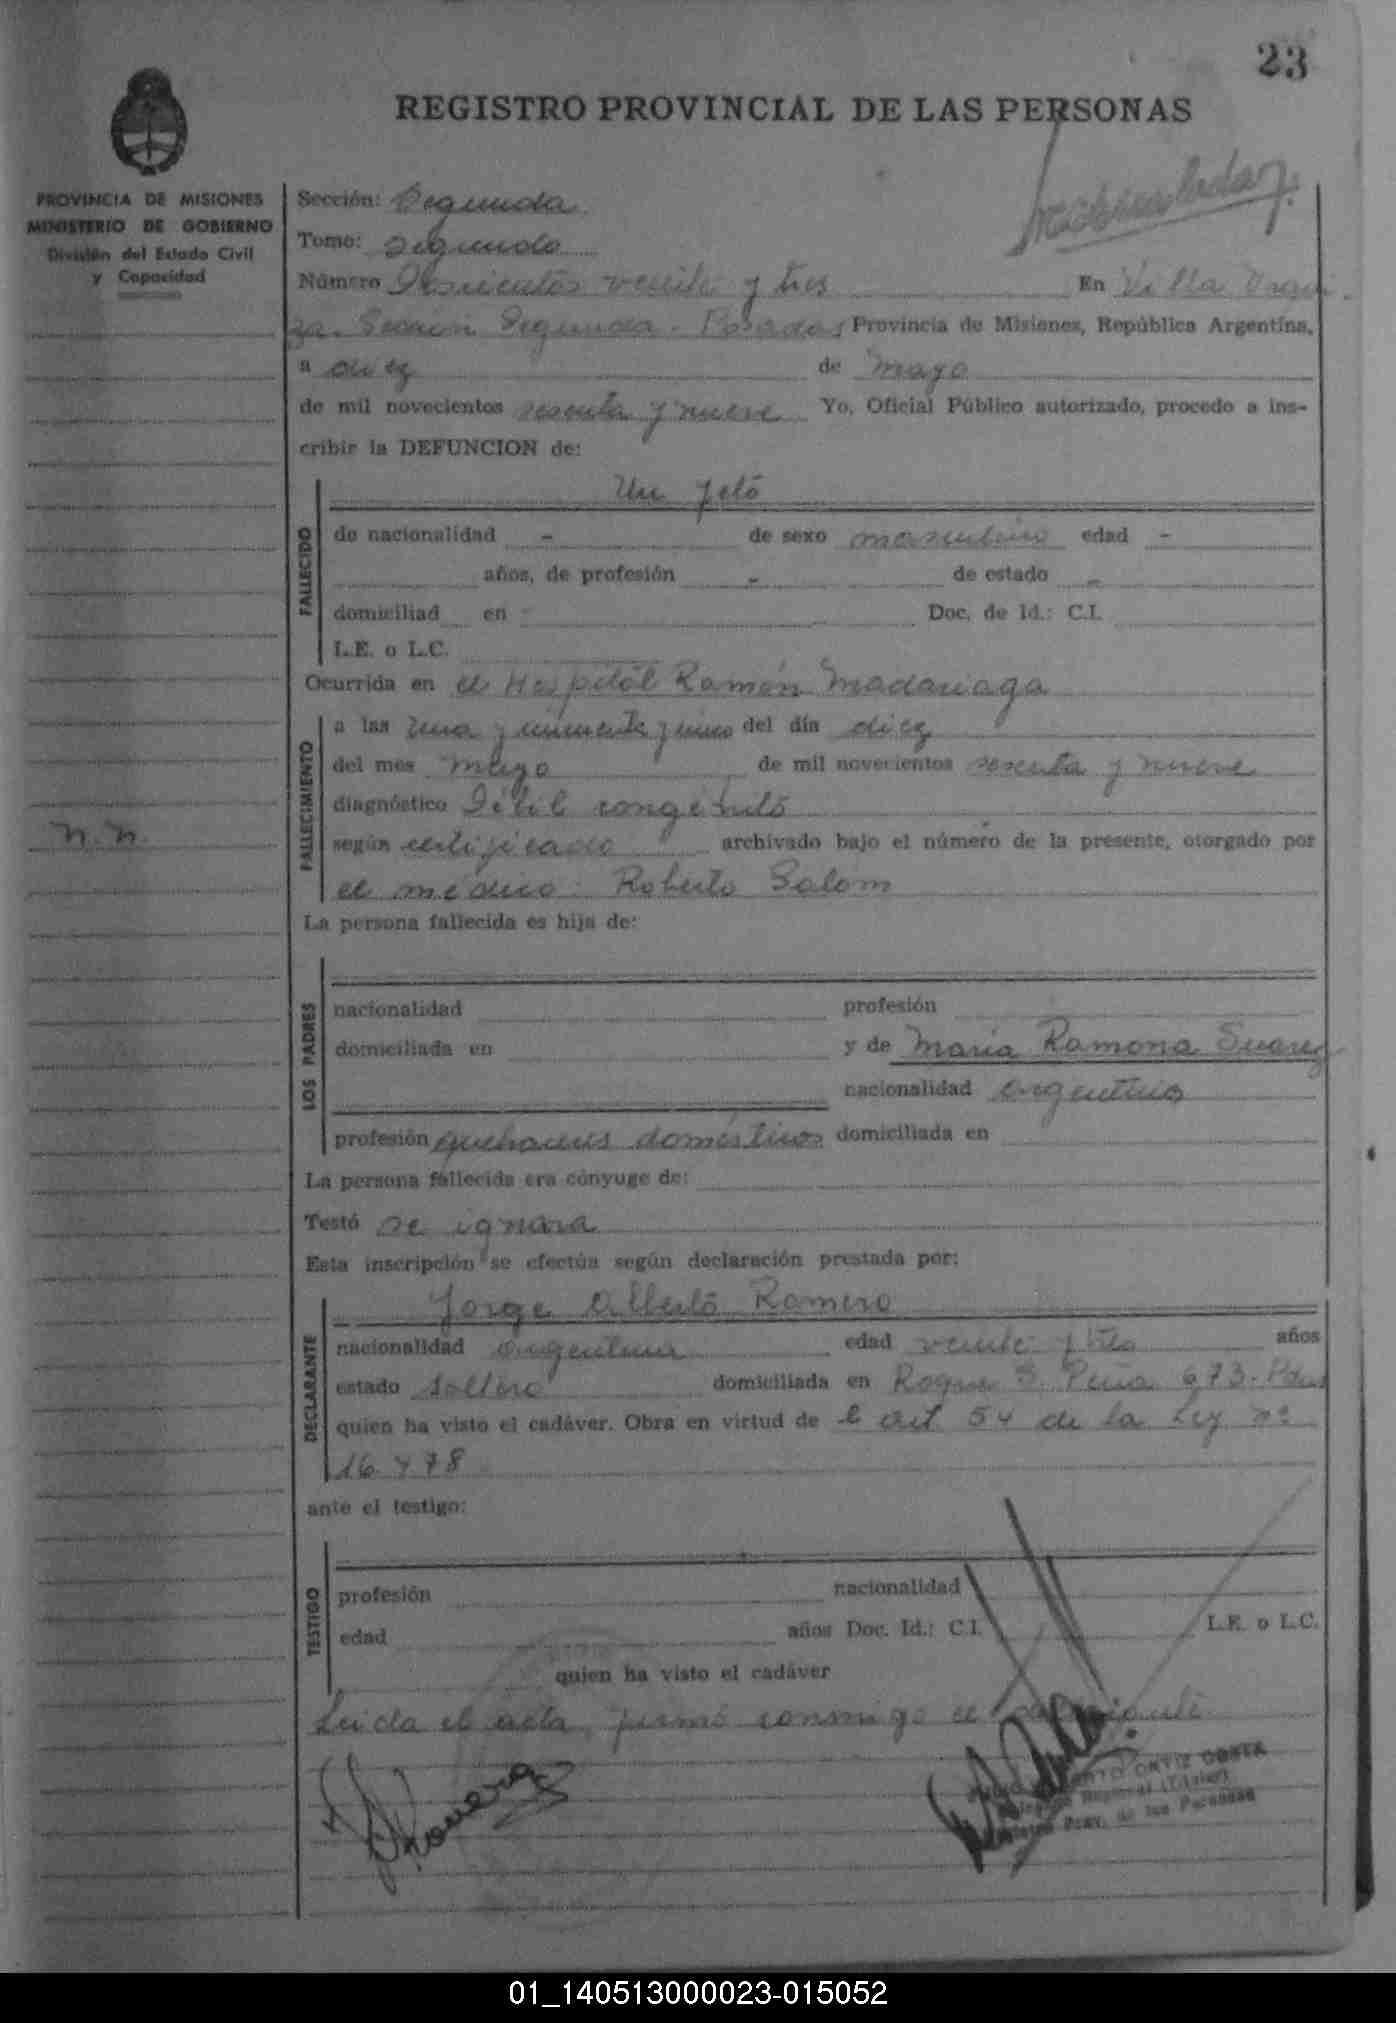 23
REGISTRO PROVINCIAL DE LAS PERSONAS
PROVINCIA DE MISIONES
MINISTERIO DE GOBIERNO
División del Estado Civil
y Capacidad
Sección: Segunda
Tomo: Segundo
Número Doscientos veinte y tres En Villa Urqui
za. Sección Segunda - Posadas Provincia de Misiones, República Argentina,
a diez de Mayo
de mil novecientos sesenta y nueve Yo, Oficial Público autorizado, procedo a ins-
cribir la DEFUNCION de:
Un feto
FALLECIDO
de nacionalidad - de sexo masculino edad -
años, de profesión - de estado -
domiciliad en - Doc. de Id.: C.I.
L.E. o L.C.
Ocurrida en el Hospital Ramón Madariaga
FALLECIMIENTO
a las una y cincuenta y cinco del día diez
del mes Mayo de mil novecientos sesenta y nueve
diagnóstico Débil congénito
N.N.
según certificado archivado bajo el número de la presente, otorgado por
el médico: Roberto Salom
La persona fallecida es hija de:
LOS PADRES
nacionalidad profesión
domiciliada en y de María Ramona Suarez
nacionalidad argentina
profesión quehaceres domésticos domiciliada en
La persona fallecida era cónyuge de:
Testó se ignora
Esta inscripción se efectúa según declaración prestada por:
Jorge Alberto Romero
DECLARANTE
nacionalidad argentina edad veinte y tres años
estado soltero domiciliada en Roque S. Peña 673-Pdas
quien ha visto el cadáver. Obra en virtud de l art 54 de la Ley nº
16.478
ante el testigo:
TESTIGO
profesión nacionalidad
edad años Doc. Id.: C.I. L.E. o L.C.
quien ha visto el cadáver
Leida el acta, firmó conmigo el
Romero
ORTIZ COSTA
Delegado Regional (Titular)
Prov. de las Personas
01_140513000023-015052